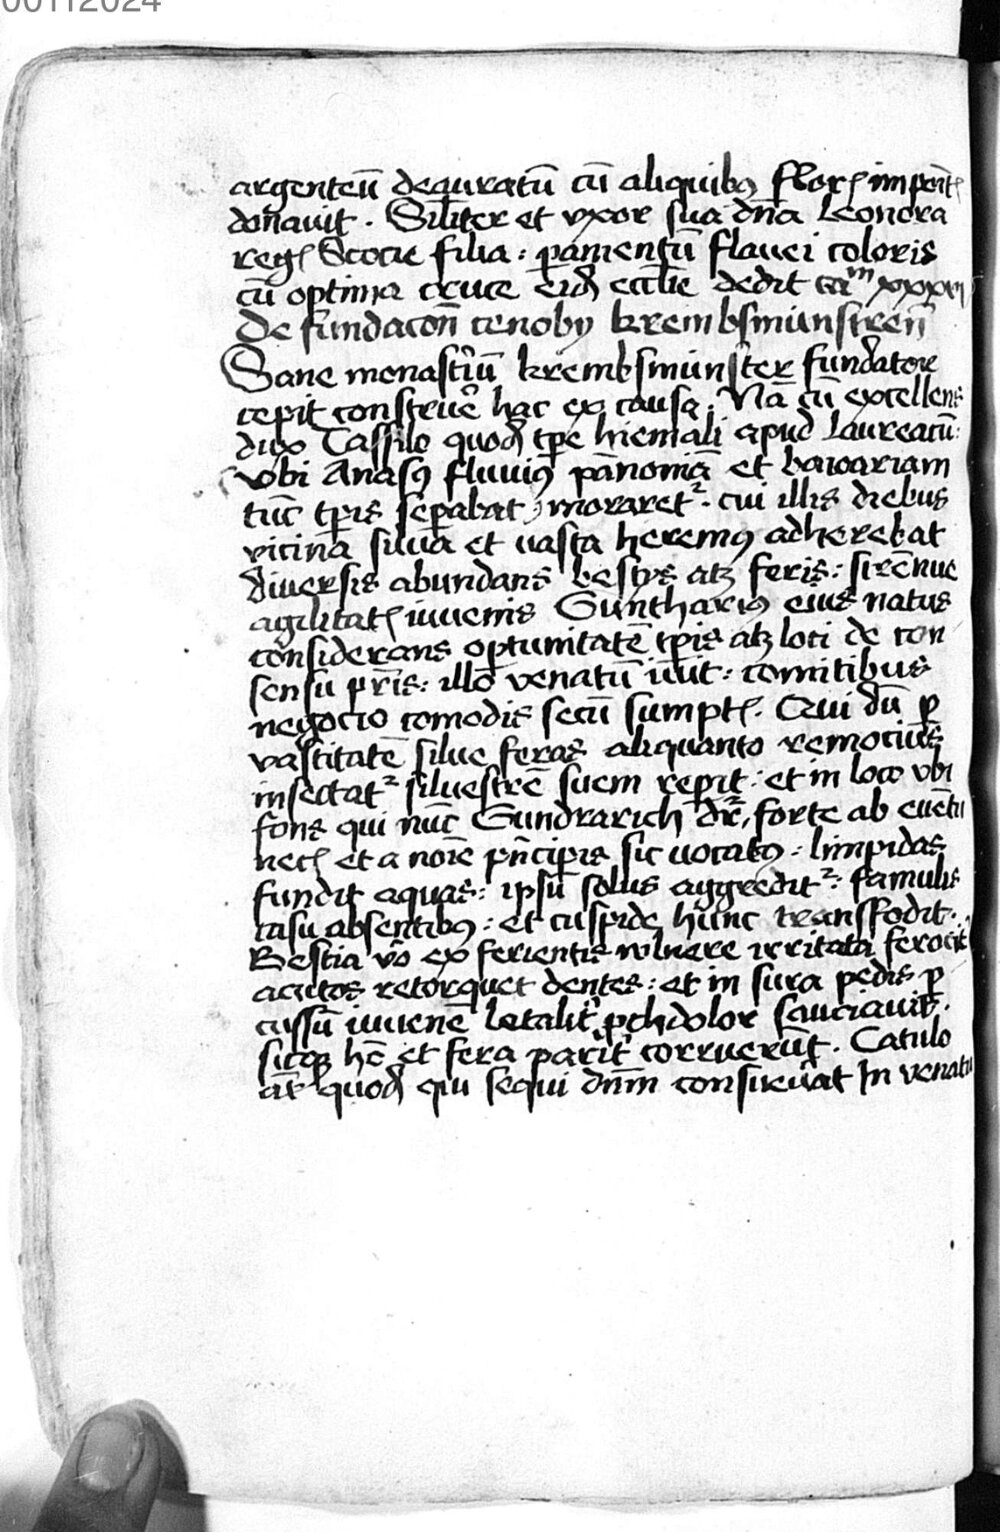 00112024
argenteū deauratū cū aliquibꝯ flor̄ impoīt
donavit . Silit̄er et vxor sua dn̄a leonora
reḡ Scocie filia : pamentū flavei coloris
cū optima cruce eid̄ eccl̄ie dedit caᵐ xxxvj
De fundacōn cenobij krembsmünstren̄
Sane monast'iū krembsmünster fundatore
cepit construe' hac ex causa . Nā cū excellens
dux Tassilo quod̄ tp̄e hiemali apud laureacū :
vbi Anasꝯ fluviꝯ pānoniā et bawariam
tūc tp̄is sep̄abat , moraret² . cui illis diebus
vicina silua et uasta heremꝯ adherebat
diuersis abundans bestijs atꝫ feris : strēnue
agilitat̄ iuuenis Guntharius eius natus
considerans oportunitatē tp̄is atꝫ loci de con
sensu pr̄is : illo venatū iuit : comitibus
negocio comodis secū sumpt̄ . Qui dū ꝑ
vastitatē silue feras aliquanto remocius
insectat² silvestrē suem rep̄it : et in loco vbi
fons qui nūc Gundrarich dr̄ , forte ab euētu
nec̄ et a noīe pn̄cipis sic vocatꝯ : limpidas
fundit aquas : ipsū solus aggredit² : famulis
casu absentibꝯ : et cuspide hunc transfodit .
Bestia v̊o ex ferientis vulnere irritata ferocit'
acutos retorquet dentes : et in sura pedis ꝑ
cussū iuuenē letalit' ꝓch dolor sauciavit .
sicqꝫ hō et fera parit' corruerūt . Catulo
aūt quod̄ qui sequi dn̄m consueuat In venatu